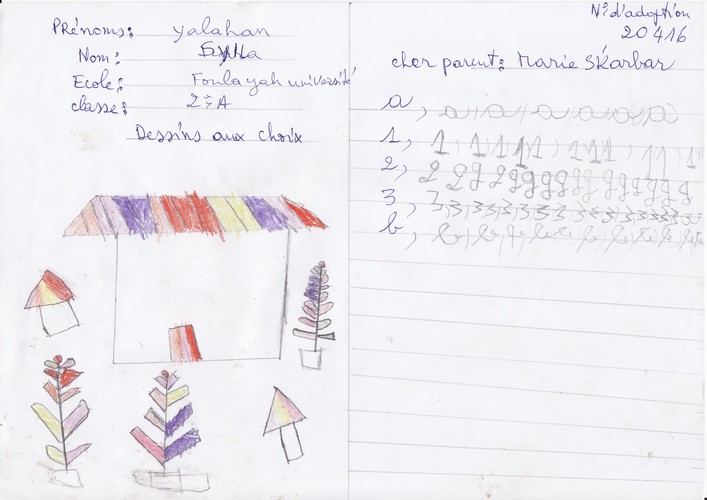 Prénoms: yalahan
Nom: Sylla
Ecole: Foulayah université
classe: 2è A
Dessins aux choix
N° d'adoption
20416
cher parent: Marie Skarbar
a, a a a a a a
1, 1 1 1 1 1 1 1 1 1 1 1 1
2, 2 2 2 2 2 2 2 2 2 2 2 2 2 2
3, 3 3 3 3 3 3 3 3 3 3 3 3 3 3
b, b b b b b b b b b